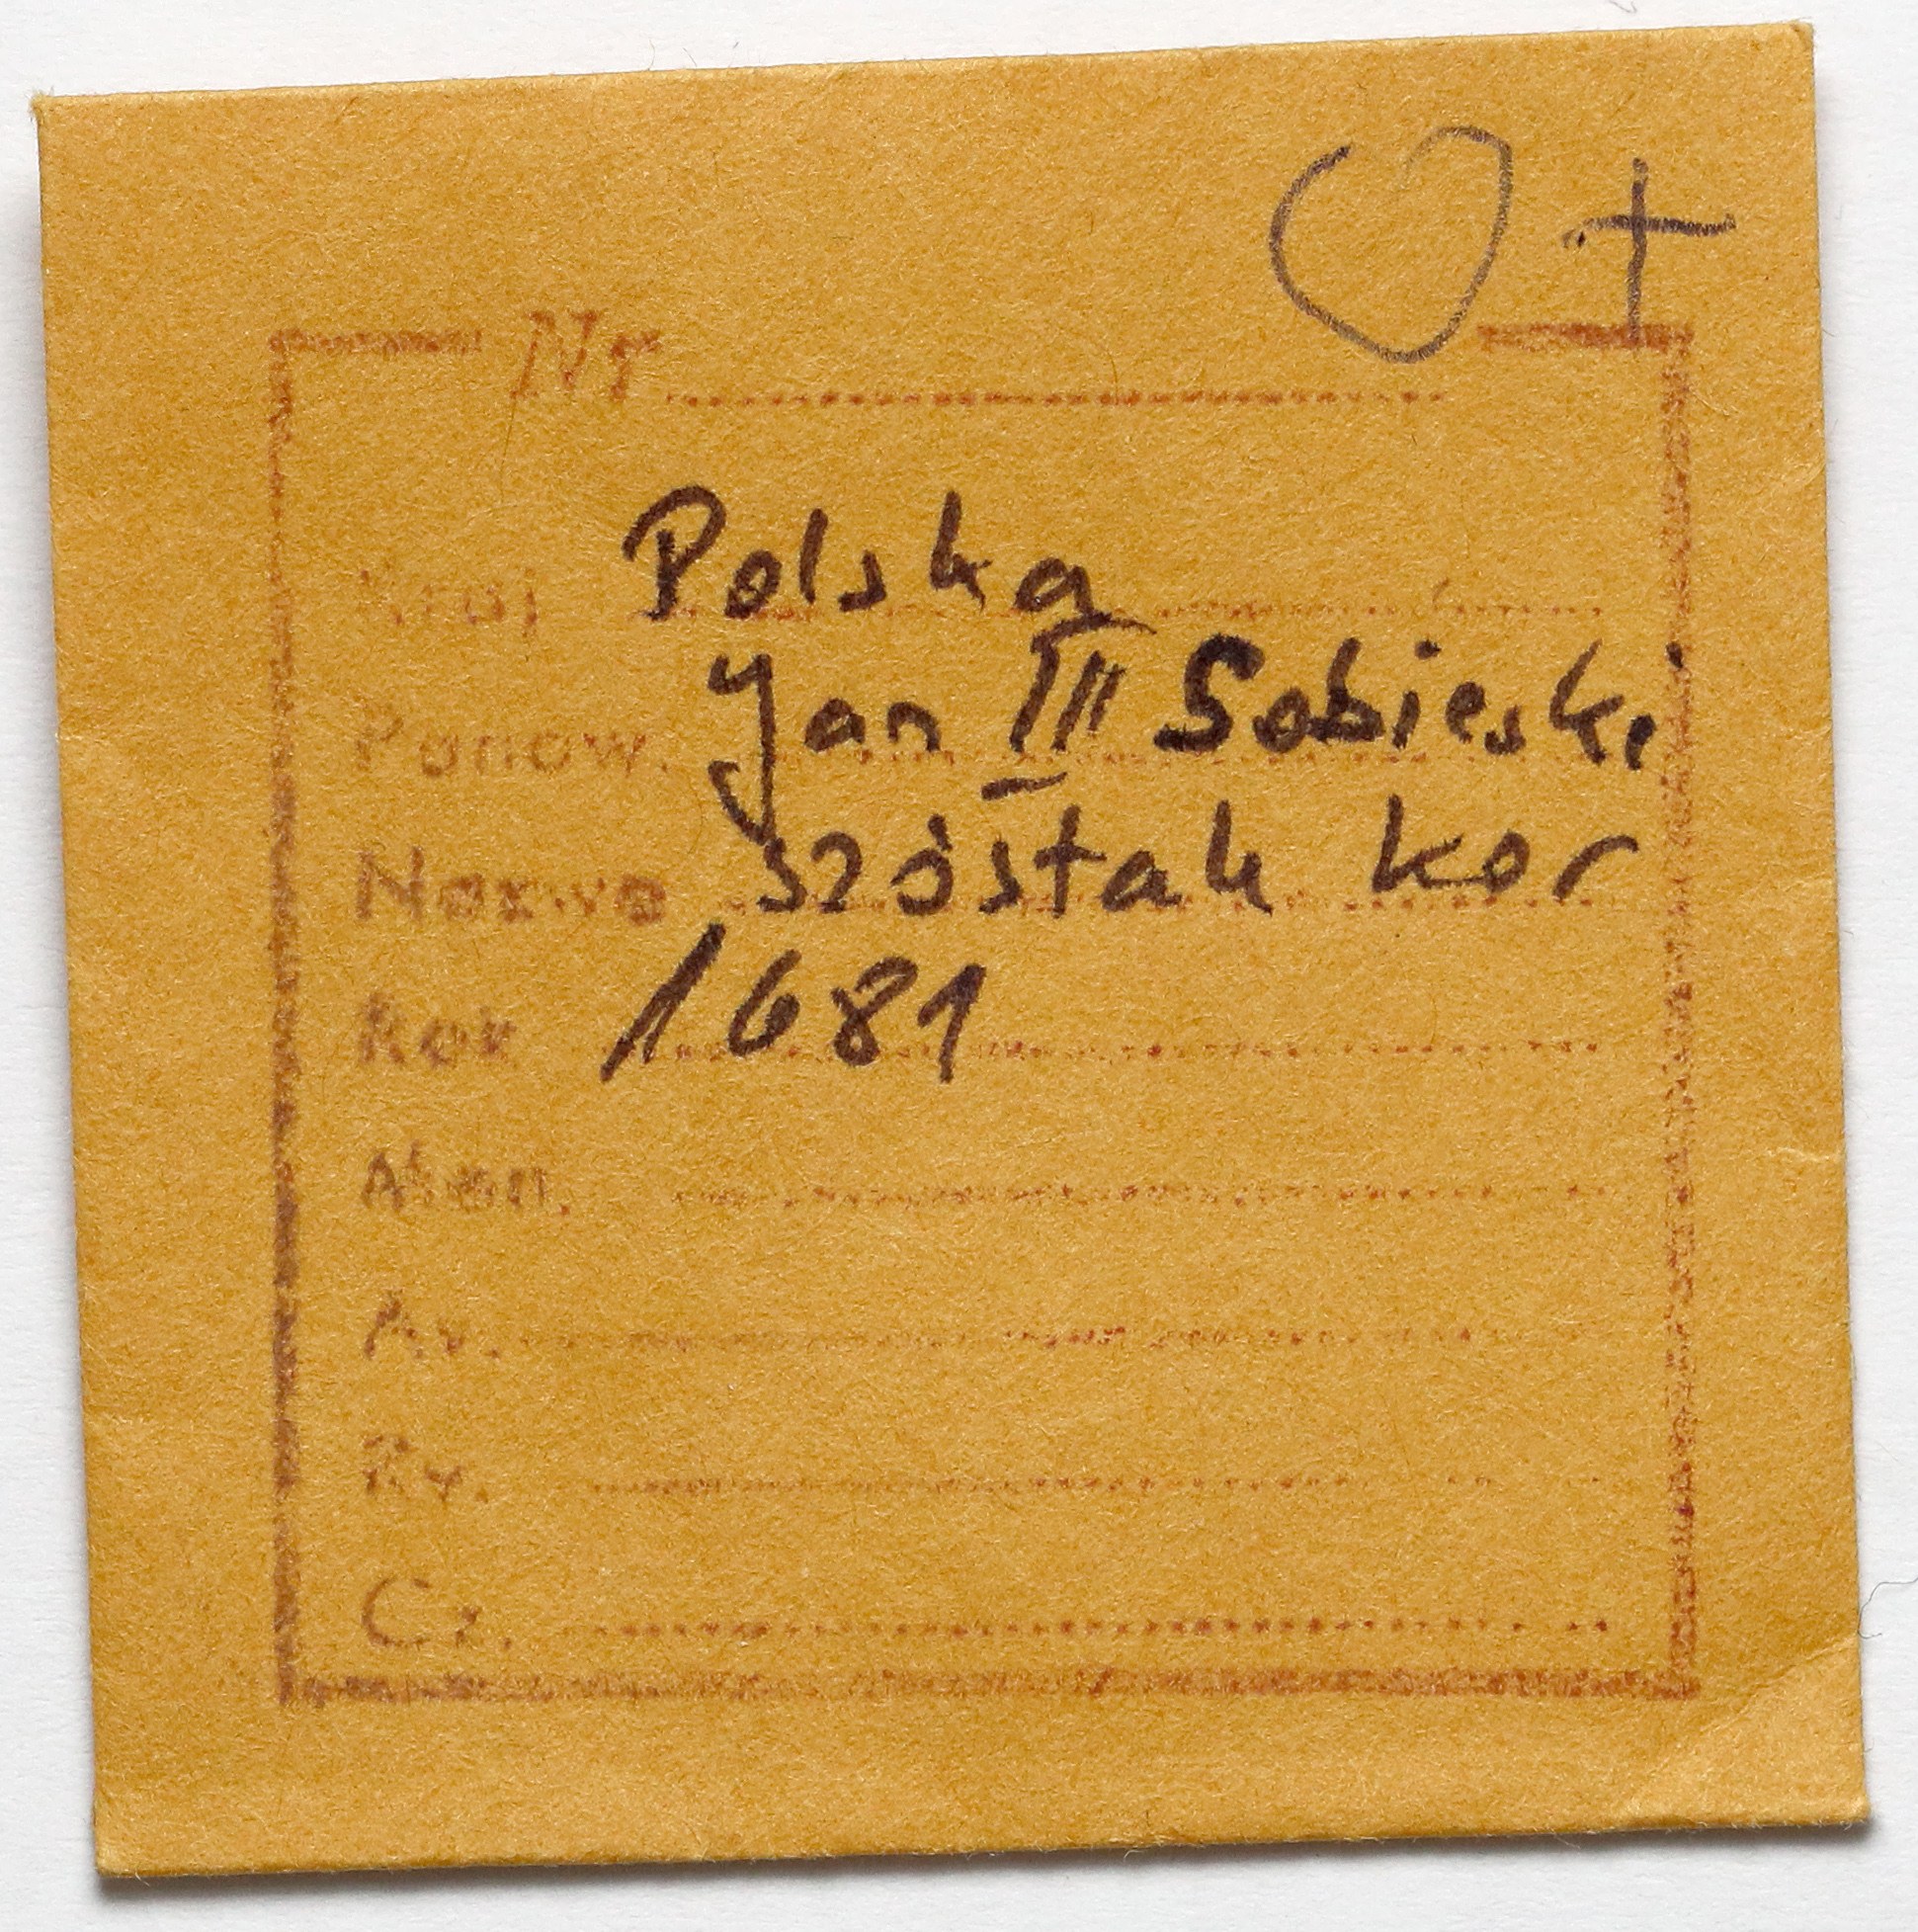 O+
Nr
Kraj Polska
Panow. Jan III Sobieski
Nazwa szóstak kor
Rok 1681
Men.
Av.
Rv.
Cz.